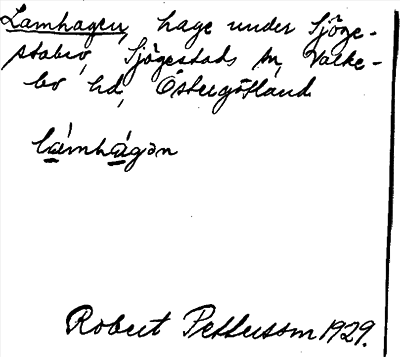 Lamhagen, hage under Sjöge-
stabro, Sjögestads sn, Valke-
bo hd, Östergötland
lámhàgən
Robert Pettersson 1929.